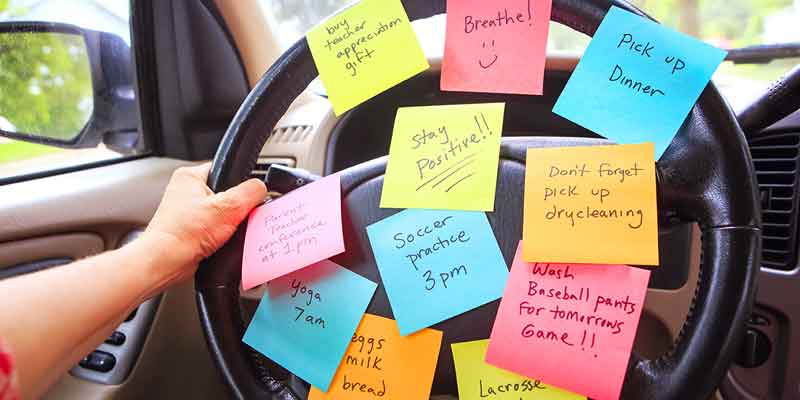 buy
teacher
appreciation
gift
Breathe!
Pick up
Dinner
Stay
Positive!!
Don't forget
pick up
drycleaning
Parent
Teacher
conference
at 1pm
Soccer
practice
3pm
Yoga
7am
Wash
Baseball pants
for tomorrows
Game!!
eggs
milk
bread
Lacrosse